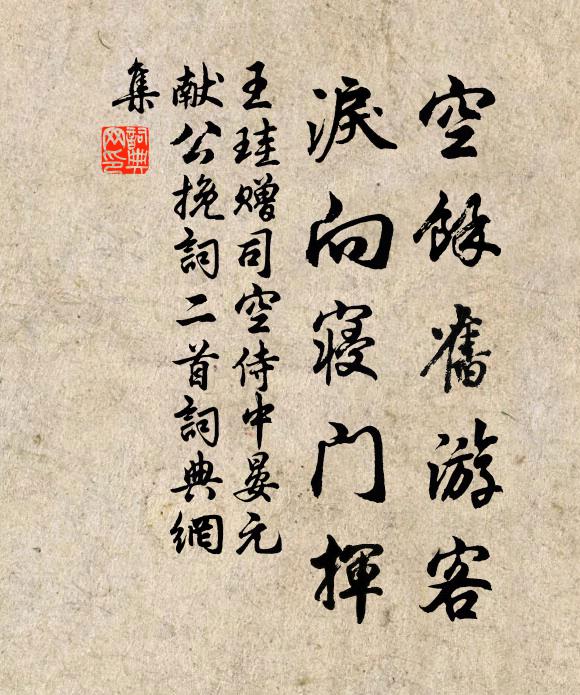 空餘舊游客
淚向寢门揮
王珪赠司空侍中晏元
献公挽詞二首詞典網
集
詞典
网印